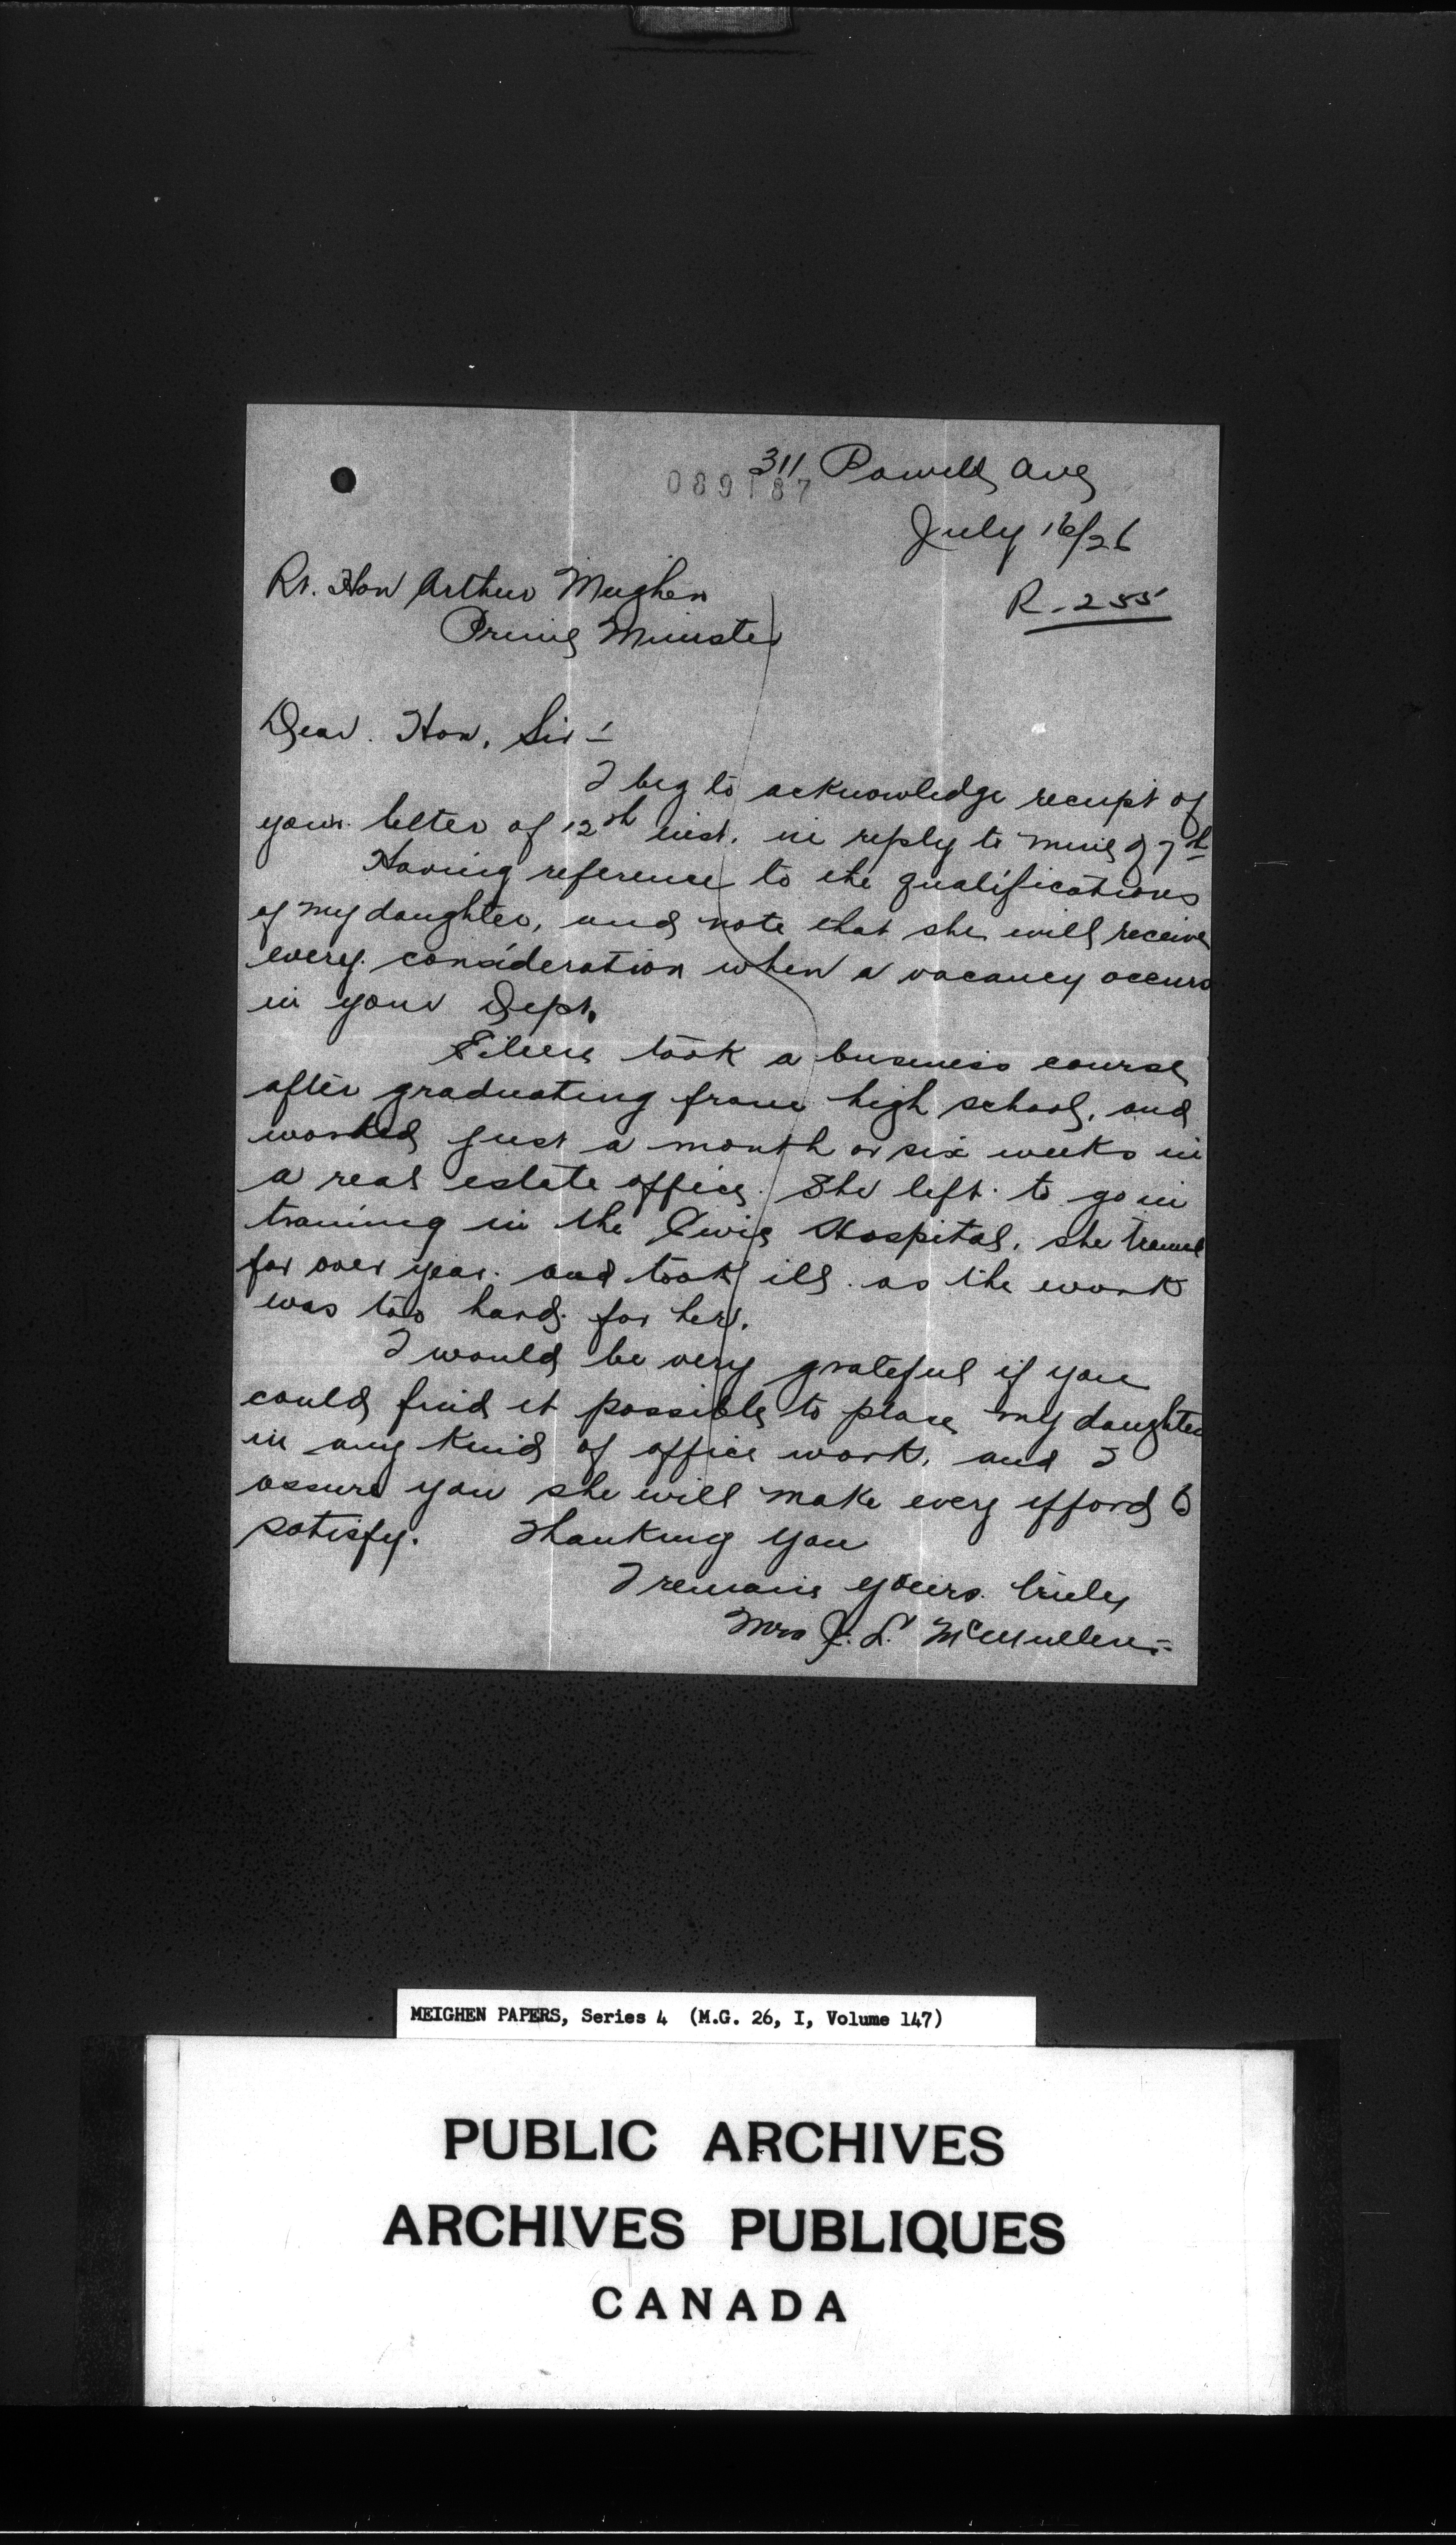 311 Powell Ave
089187
July 16/26
R-255
Rt. Hon Arthur Meighen
Prime Minister
Dear. Hon, Sir –
I beg to acknowledge receipt of
your letter of 12th inst. in reply to mine of 7th
Having reference to the qualifications
of my daughter, and note that she will receive
every consideration when a vacancy occurs
in your Dept.
Eileen took a business course
after graduating from high school, and
worked just a month or six weeks in
a real estate office. She left to go in
training in the Civic Hospital, she trained
for over year. and took ill as the work
was too hard for her.
I would be very grateful if you
could find it possible to place my daughter
in any kind of office work, and I
assure you she will make every efford to
satisfy. Thanking you
I remain yours truly
Mrs J. L. McMullen
MEIGHEN PAPERS, Series 4 (M.G. 26, I, Volume 147)
PUBLIC ARCHIVES
ARCHIVES PUBLIQUES
CANADA